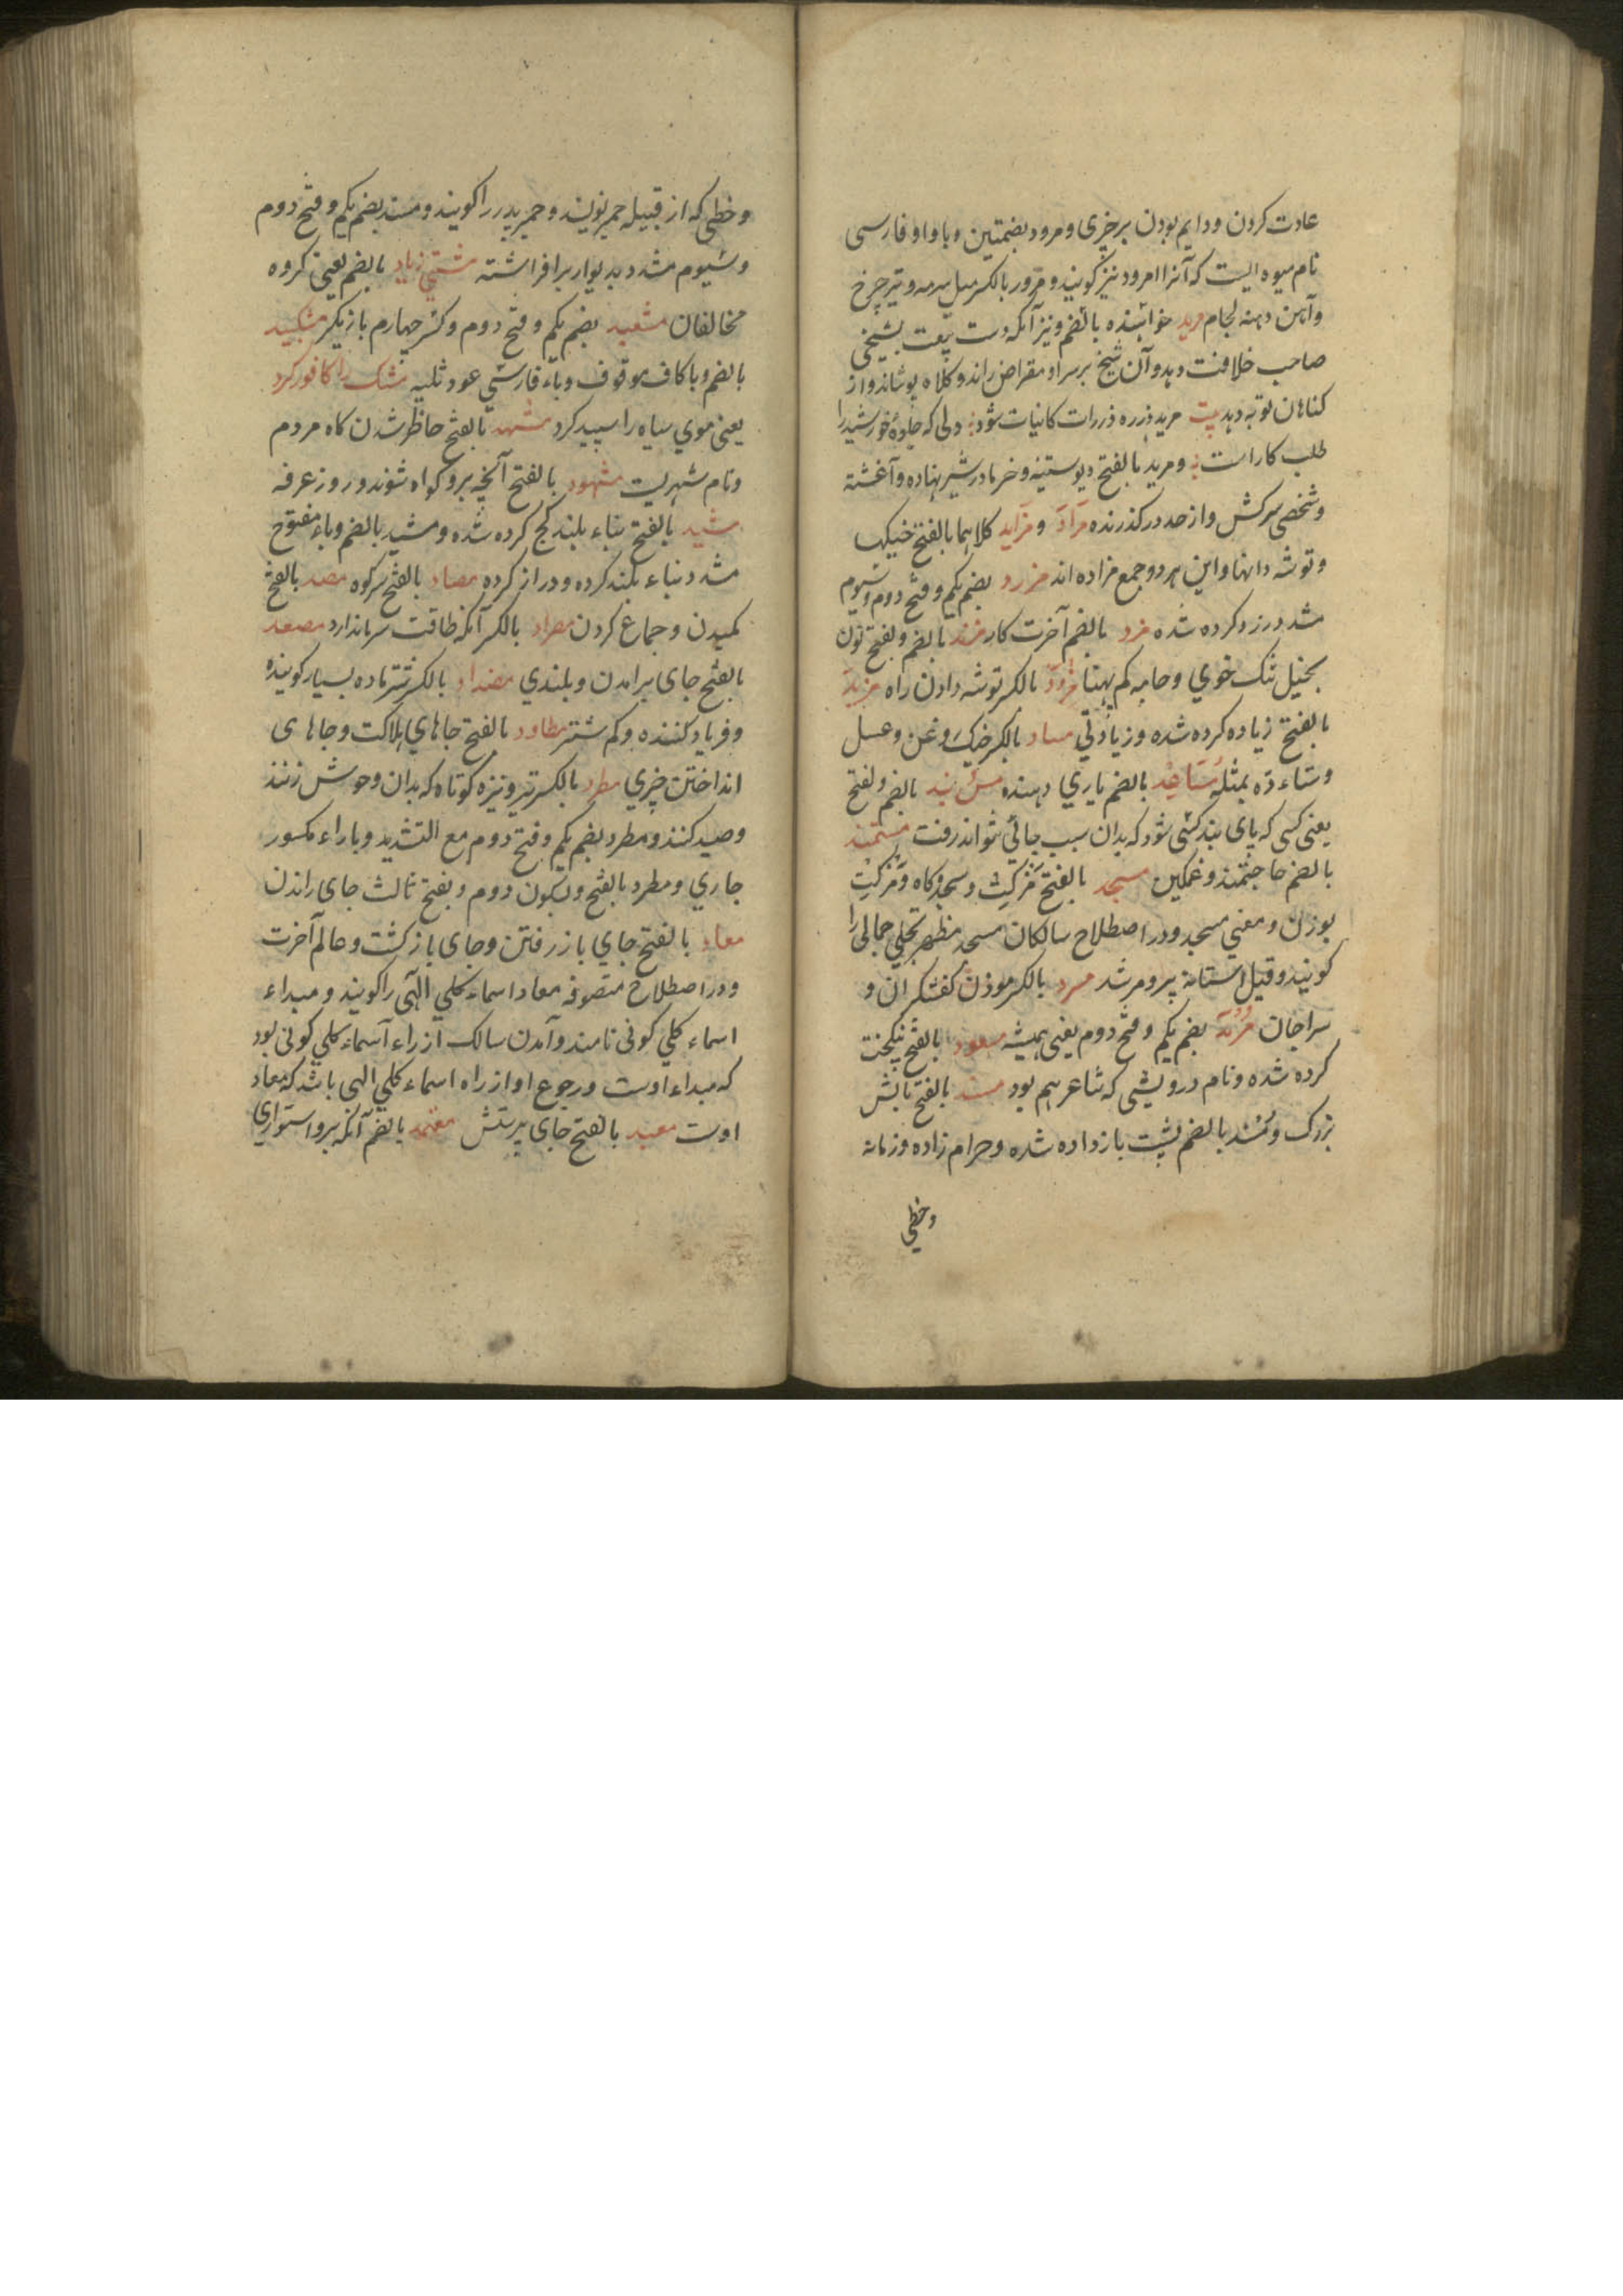 عادت کردن ودایم بودن برچیزی ومرود بضمتین وباواو فارسی
نام میوه ایست که آنرا امرود نیز کویند ومرور بالکسر میل سرمه وتیر چرخ
وآهن دهنه لجام مرید خواننده بالضم ونیز آنکه دست بیعت بشیخی
صاحب خلافت دهد وآن شیخ برسر او مقراض راند وکلاه پوشاند واز
کناهان توبه دهد بیت مرید ذره ذرات کاینات شود دلی که جلوهٔ خورشید را
طلب کار است ومرید بالفتح دیو ستنبه وخرما درشیر نهاده وآغشته
وشخصی سرکش واز حد درکذرنده مزاد ومزاید کلاهما بالفتح خنیکها
وتوشه دانها واین هر دو جمع مزاده اند مزرد بضم یکم وفتح دوم وسیوم
مشدد زرد کرده شده مزد بالضم آخرت کار مزند بالضم وبفتح نون
بخیل تنک خوی وجامه کم پهنا مزود بالکسر توشه دادن راه مزید
بالفتح زیاده کرده شده وزیادتی مساد بالکسر خیک روغن وعسل
ومساء ده بمثله مساعد بالضم یاری دهنده مسن بند بالضم وبفتح
یعنی کسی که پای بند کسی شود که بدان سبب جائی نتواند رفت مستمند
بالضم حاجتمند وغمکین مسجد بالفتح مزکت وسجده کاه ومزکت
بوزن ومعنی مسجد ودر اصطلاح سالکان مسجد مظهر تجلی جمالی را
کویند وقیل استانه پیر ومرشد مسرد بالکسر موذن کفشکران و
سراجان بضم یکم وفتح دوم یعنی همیشه مسعود بالفتح نیکبخت
کرده شده ونام درویشی که شاعر هم بود مسند بالفتح بالش
بزرک ومسند بالضم پشت باز داده شده وحرام زاده وزمانه
وخطی
وخطی که از قبیله حمیر نویسند وحمیر پدر را کویند ومسند بضم یکم وفتح دوم
وسیوم مشدد بدیوار برافراشته مشتی زیاد بالضم یعنی کروه
مخالفان مشعبد بضم یکم وفتح دوم وکسر چهارم بازیکر مشکبید
بالضم وباکاف موقوف وباء فارسی عود ثلبه مشک را کافور کرد
یعنی موی سیاه را سپید کرد مشهد بالفتح حاظر شدن کاه مردم
ونام شهریست مشهود بالفتح آنچه برو کواه شوند وروز عرفه
مشید بالفتح بناء بلند کج کرده شده ومشید بالضم وباء مفتوح
مشدد بناء بلند کرده ودراز کرده مصاد بالفتح سرکوه مصد بالفتح
کمیدن وجماع کردن مصراد بالکسر آنکه طاقت سرما ندارد مصعد
بالفتح جای برامدن وبلندی مضداد بالکسر شتر ماده بسیار کوینده
وفریاد کننده وکم شتر مطاود بالفتح جاهای هلاکت وجاهای
انداختن چیزی مطرد بالکسر تیر ونیزه کوتاه که بدان وحوش زنند
وصید کنند ومطرد بضم یکم وفتح دوم مع التشدید وباراء مکسور
جاری ومطرد بالفتح وسکون دوم وبفتح ثالث جای راندن
معاد بالفتح جای باز رفتن وجای باز کشت وعالم آخرت
ودر اصطلاح متصوفه معاد اسماء کلی الهی را کویند ومبداء
اسماء کلی کونی نامند وآمدن سالک از راه اسماء کلی کونی بود
که مبداء اوست ورجوع او از راه اسماء کلی الهی باشد که معاد
اوست معبد بالفتح جای پرستش معتمد بالضم آنکه برو استواری